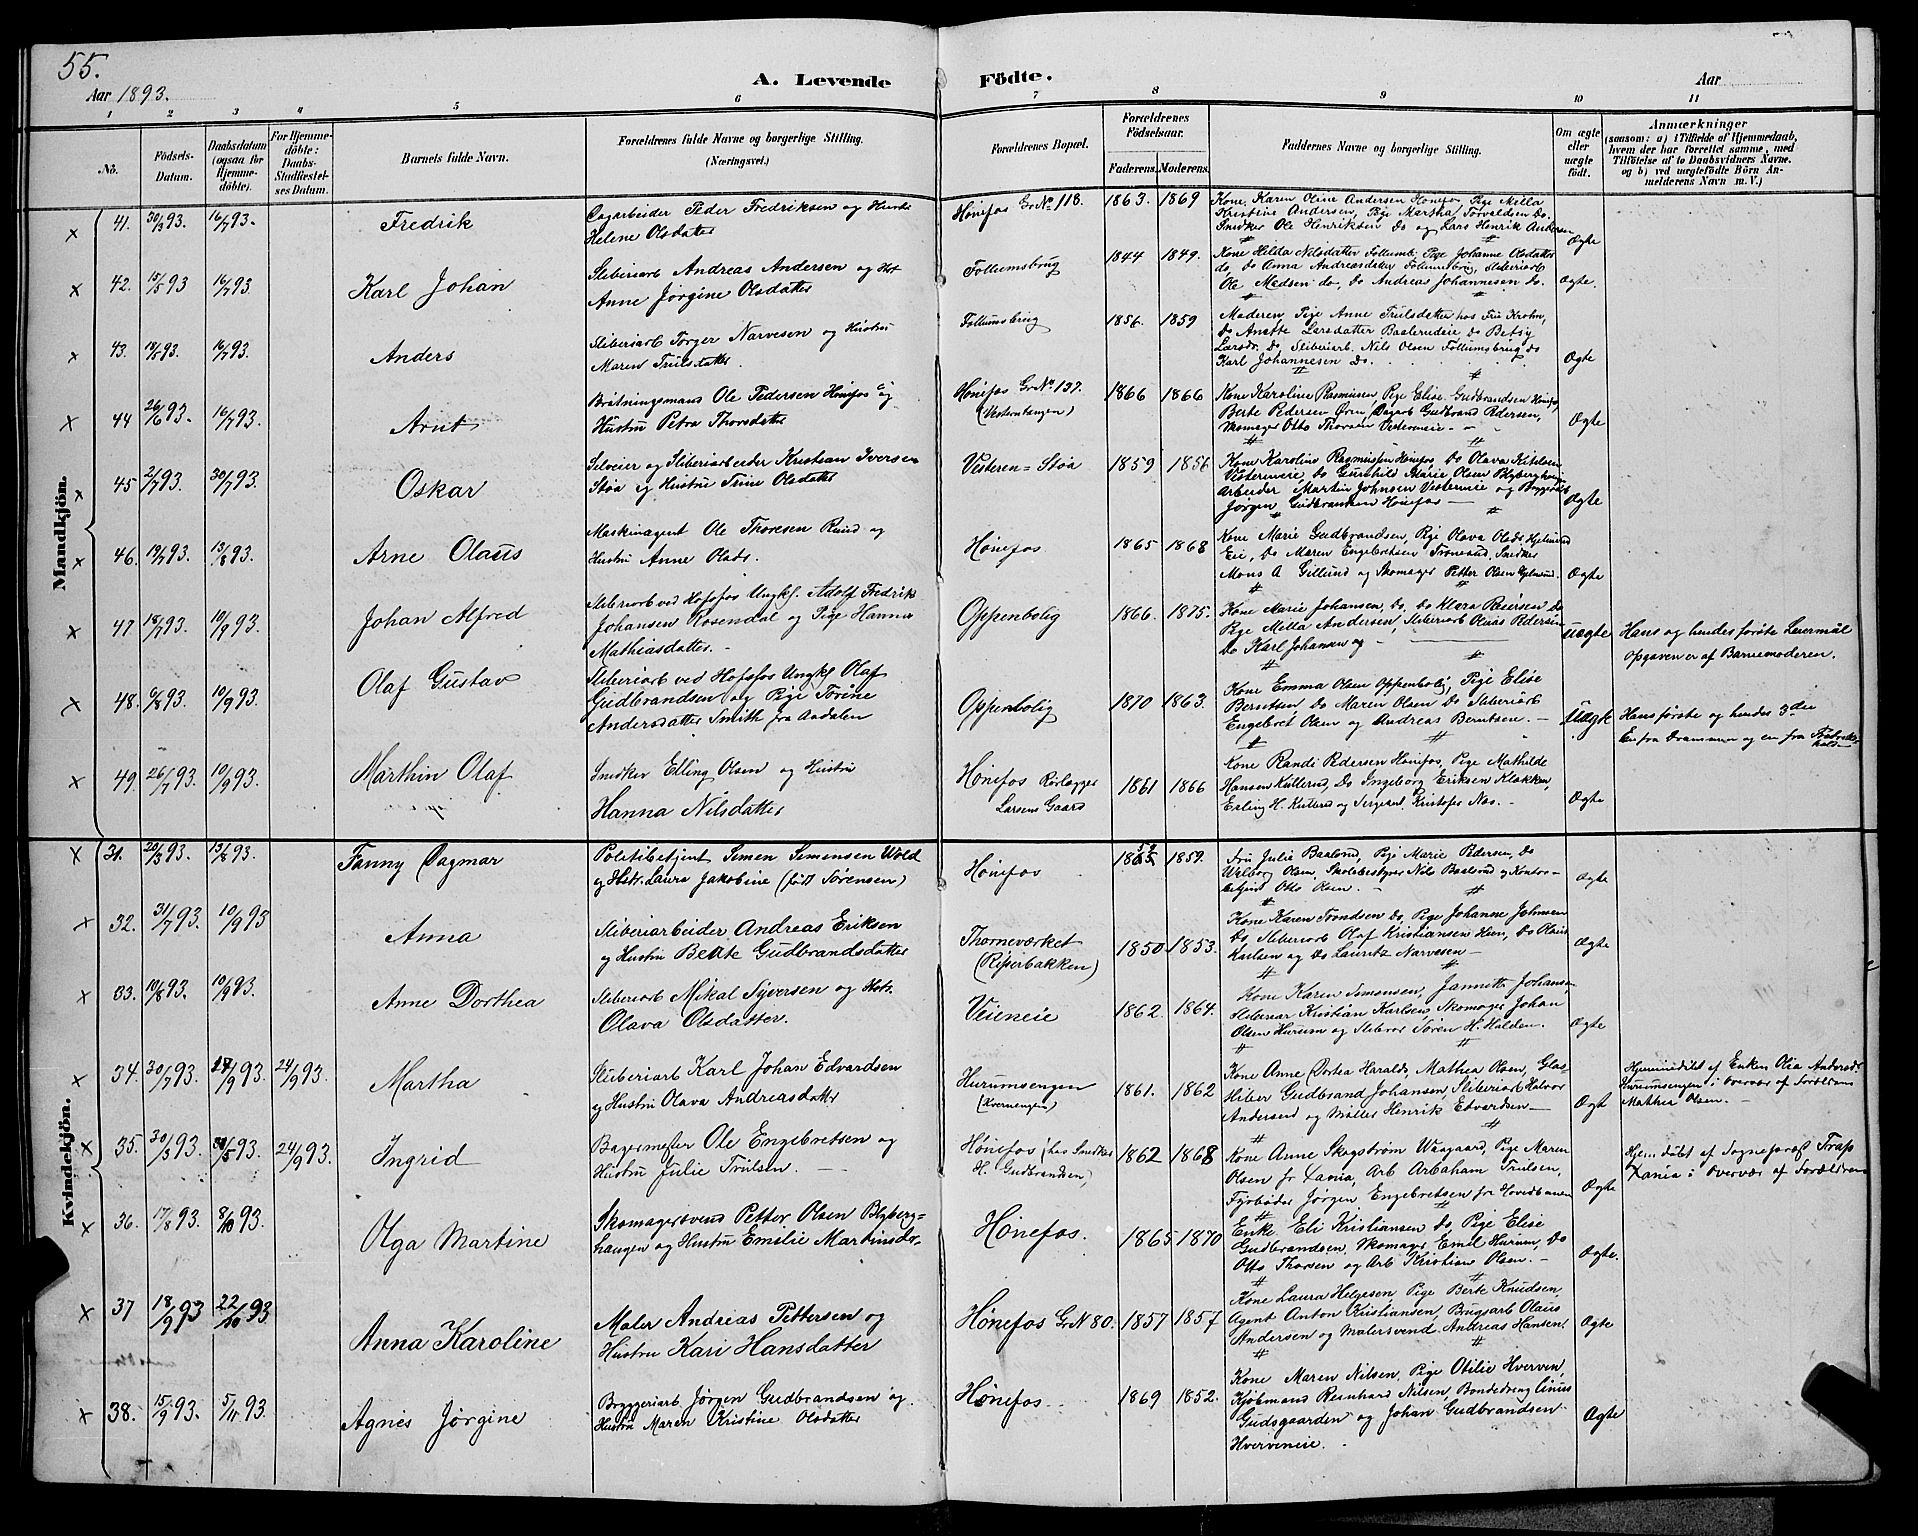 55.
A. Levende Födte.
Aar 1893.
Aar
1 2 3 4 5 6 7 8 9 10 11
No.
Födsels-Datum.
Daabsdatum (ogsaa for Hjemme-döbte).
For Hjemme-döbte: Daabs-Stadfæstel-ses Datum.
Barnets fulde Navn.
Forældrenes fulde Navne og borgerlige Stilling.
(Næringsvei.)
Forældrenes Bopæl.
Forældrenes Födselsaar.
Faderens. Moderens.
Faddernes Navne og borgerlige Stilling.
Om ægte eller uægte födt.
Anmærkninger
(saasom: a) i Tilfælde af Hjemmedaab,
hvem der har forrettet samme, med
Tilföielse af to Daabsvidners Navne.
og b) ved uægtefödte Börn An-
melderens Navn m. V.)
Mandkjön.
41. 30/3 93. 16/7 93. Fredrik
Dagarbeider Peder Fredriksen og Hustru
Helene Olsdatter
Hönefos Gr No 118. 1863. 1869
Kone Karen Oline Andersen Hönefos, Pige Milla
Kristine Andersen, Pige Martha Torvaldsen Do.
Snedker Ole Henriksen Do og Lars Henrik Andersen
Ægte
42. 15/5 93 16/7 93. Karl Johan
Sliberiarb Andreas Andersen og Hst
Anne Jørgine Olsdatter
Follumsbrug 1844 1849.
Kone Hilda Nilsdatter Follumb. Pige Johanne Olsdatter
do, Do Anna Andreasdatter Follumsbrug, Sliberiarb
Ole Madsen do, Do Andreas Johannesen do.
Ægte.
43. 16/7 93. Anders
Sliberiarb Torger Narvesen og Hustru
Maren Trulsdatter.
Follumsbrug 1856. 1859
Moderen, Pige Anne Trulsdatter hos Fru Krohn,
Do Anette Larsdatter Do Betsy
Larsdr. Do Sliberiarb. Nils Olsen Follumsbrug do
Karl Johannesen Do.
Ægte
44 26/6 93. 16/7 93. Arnt
Bråtningsmand Ole Pedersen Hönefos og
Hustru Petra Thorsdatter
Hönefos Gr No 137.
(Vesterntangen) 1866 1866
Kone Karoline Rasmusen, Pige Elise Gudbrandsen Hönefos,
Berte Pedersen Ören, Dagarb Gudbrand Pedersen,
Skomager Otto Thorsen Vesterneie
Ægte
45 2/7 93. 30/7 93. Oskar
Selveier og Sliberiarbeider Kristian Iversen
Støa og Hustru Trine Olsdatter
Vesteren=Støa 1859 1856
Kone Karoline Rasmussen Hönefos, Do Olava Kittelsen
Vesterneie, Do Gunhild Marie Olsen Blybergh.
Arbeider Martin Johnsen Vesterneie og
Jörgen Gudbrandsen Hönefos
Ægte
46. 19/7 93. 13/8 93. Arne Olaus
Maskinagent Ole Thoresen Rund og
Hustru Anne Olsdr.
Hönefos 1865 1868
Kone Marie Gudbrandsen, Pige Olava Olsdr
Eie, Do Maren Engebretsen Snedker
Mons A Gillund og Skomager Petter Olsen
Ægte
47 18/7 93. 10/9 93. Johan Alfred
Sliberiarb ved Hofsfos Ungkf. Adolf Fredrik
Johansen Rosendal og Pige Hanna
Mathiasdatter.
Oppenbolig 1866. 1875.
Kone Marie Johansen, Do, Do Klara Reiersen Do
Pige Milla Andersen, Sliberiarb Olaus Pedersen
Do Karl Johansen og
Uægte
Hans og hendes første Leiermål
Opgaven er af Barnemoderen.
48. 6/8 93. 10/9 93. Olaf Gustav
Sliberiarb ved Hofsfos Ungkf. Olaf
Gudbrandsen og Pige Torine
Andersdatter Smith fra Aadalen
Oppenbolig 1870 1863.
Kone Emma Olsen Oppenbolig, Pige Elise
Berntsen Do Maren Olsen Do Sliberiarb
Engebret Olsen og Andreas Berntsen.
Uægte
Hans første og hendes 3die
En fra Drammen og en fra Fredriks-
hald
49. 26/7 93. 10/9 93. Marthin Olaf
Snedker Elling Olsen og Hustru
Hanna Nilsdatter
Hönefos Rørlægger
Larsens Gaard 1861 1866
Kone Randi Pedersen Hönefos, Pige Mathilde
Hansen Kullerud, Do Ingeborg Eriksen Klækken,
Erling H. Kullerud og Sergeant Kristofer Næs.
Ægte
Kvindekjön.
31. 20/3 93. 13/8 93. Fanny Dagmar
Politibetjent Simen Simensen Wold
og Hstr. Laura Jakobine (født Sørensen)
Hönefos 1859.
Fru Julie Baalsrud, Pige Marie Pedersen, Do
Wilborg Olsen, Skolebestyrer Nils Baalsrud og Kontor-
betjent Otto Olsen.
Ægte
32. 31/7 93. 10/9 93 Anna
Sliberiarbeider Andreas Eriksen
og Hustru Berte Gudbrandsdatter
Thorneværket
(Ripserbakken) 1850 1853.
Kone Karen Trondsen Do, Pige Johanne Johnsen
Do, Sliberiarb Olaf Kristiansen Hien, Do Olaus
Karlsen og Do Lauritz Narvesen
Ægte
33. 10/8 93. 10/9 93. Anne Dorthea
Sliberiarb Mikal Syversen og Hstr.
Olava Olsdatter.
Veieneie 1862. 1864.
Kone Karen Simonsen, Jannette Johans-
Sliberiar Kristian Karlsen, Skomager Johan
Olsen Hurum og Sliberar Søren H. Halden.
Ægte
34. 30/7 93. 17/9 93. 24/9 93. Martha
Sliberiarb Karl Johan Edvardsen
og Hustru Olava Andreasdatter
Hurumsengen
(Kvernengen) 1861. 1862
Kone Anne Dortea Haralds, Mathea Olsen, Glas-
sliber Gudbrand Johansen, Sliberiarb Halvor
Andersend og Møller Henrik Edvardsen
Ægt
Hjemmedöbt af Enken Olia Andersdr
Hurumsengen i overvær af Forældrene
Mathea Olsen.
35. 30/3 93. 93. 24/9 93. Ingrid
Bagermester Ole Engebretsen og
Hustru Julie Trulsen.
Hönefos (hos Snedker
H. Gudbrandsen) 1862 1868
Kone Anne Skogstrøm Waagaard, Pige Maren
Olsen fr Xania, Arb Arbaham Trulsen,
Fyrbøder Jörgen Engebretsen fr Hovedbanen
Ægte
Hjem. döbt af Sognepræst Trap
Xania i Overvær af Forældrene
36. 17/8 93. 8/10 93. Olga Martine
Skomagersvend Petter Olsen Blyberg=
haugen og Hustru Emilie Martinsdr.
Hönefos. 1865 1870
Enke Eli Kristiansen Do, Pige Elise
Gudbrandsen, Skomager Emil Hurum, Do
Otto Thorsen og Arb Kristian Olsen.
Ægte.
37 18/9 93 22/10 93 Anna Karoline
Maler Andreas Pettersen og
Hustru Kari Hansdatter
Hönefos Gr N 80. 1857 1857
Kone Laura Helgesen, Pige Berte Knudsen,
Agent Anton Kristiansen, Brugsarb Olaus
Andersen og Malersvend Andreas Hansen.
Ægte
38. 15/9 93. 5/11 93. Agnes Jørgine
Bryggeriarb. Jørgen Gudbrandsen og
Hustru Maren Kristine Olsdatter
Hönefos 1869 1852.
Kone Maren Nilsen, Pige Otilie Hverven,
Kjøbmand Reinhard Nilsen, Bondedreng Linus
Gudsgaarden og Johan Gudbrandsen
Hverveneie.
Ægte